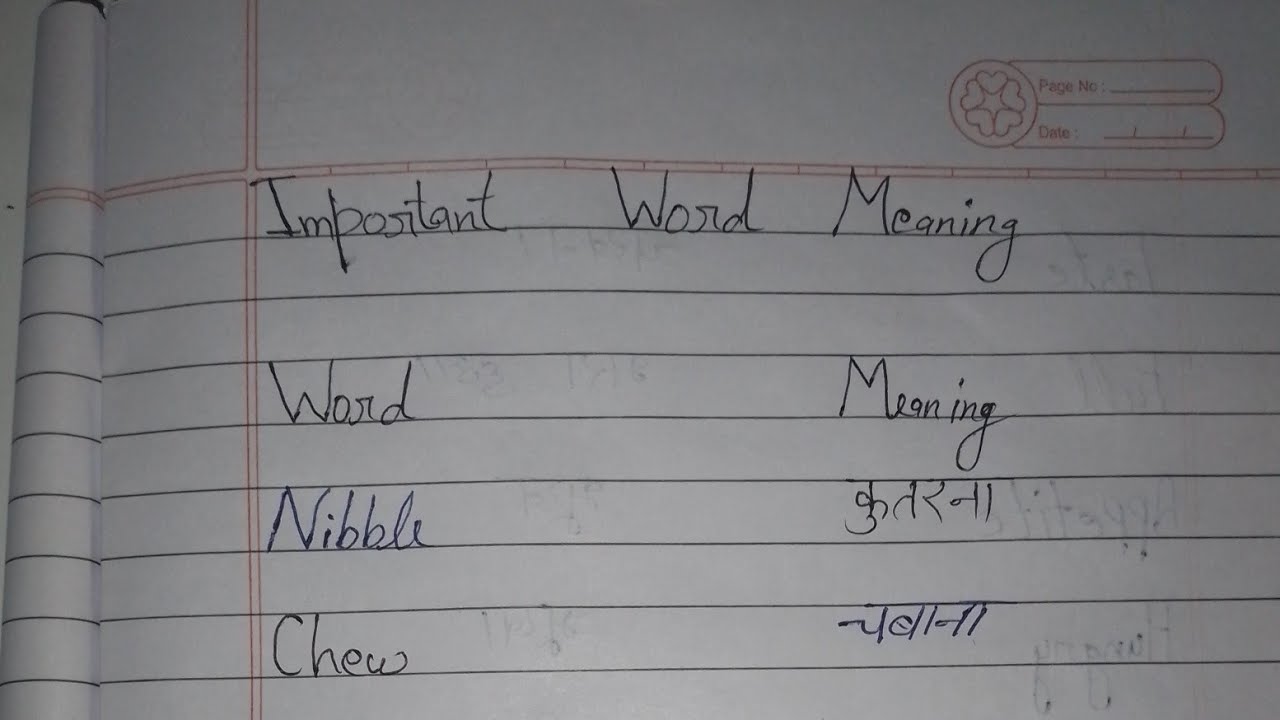 Page No :
Date : / /
Important Word Meaning
Word Meaning
Nibble कुतरना
Chew चबाना